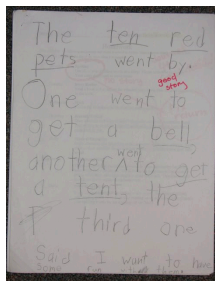 The ten red
pets went by.
good
story
One went to
get a bell,
went
another ^ to get
a tent, the
third one
Said I want to have
some